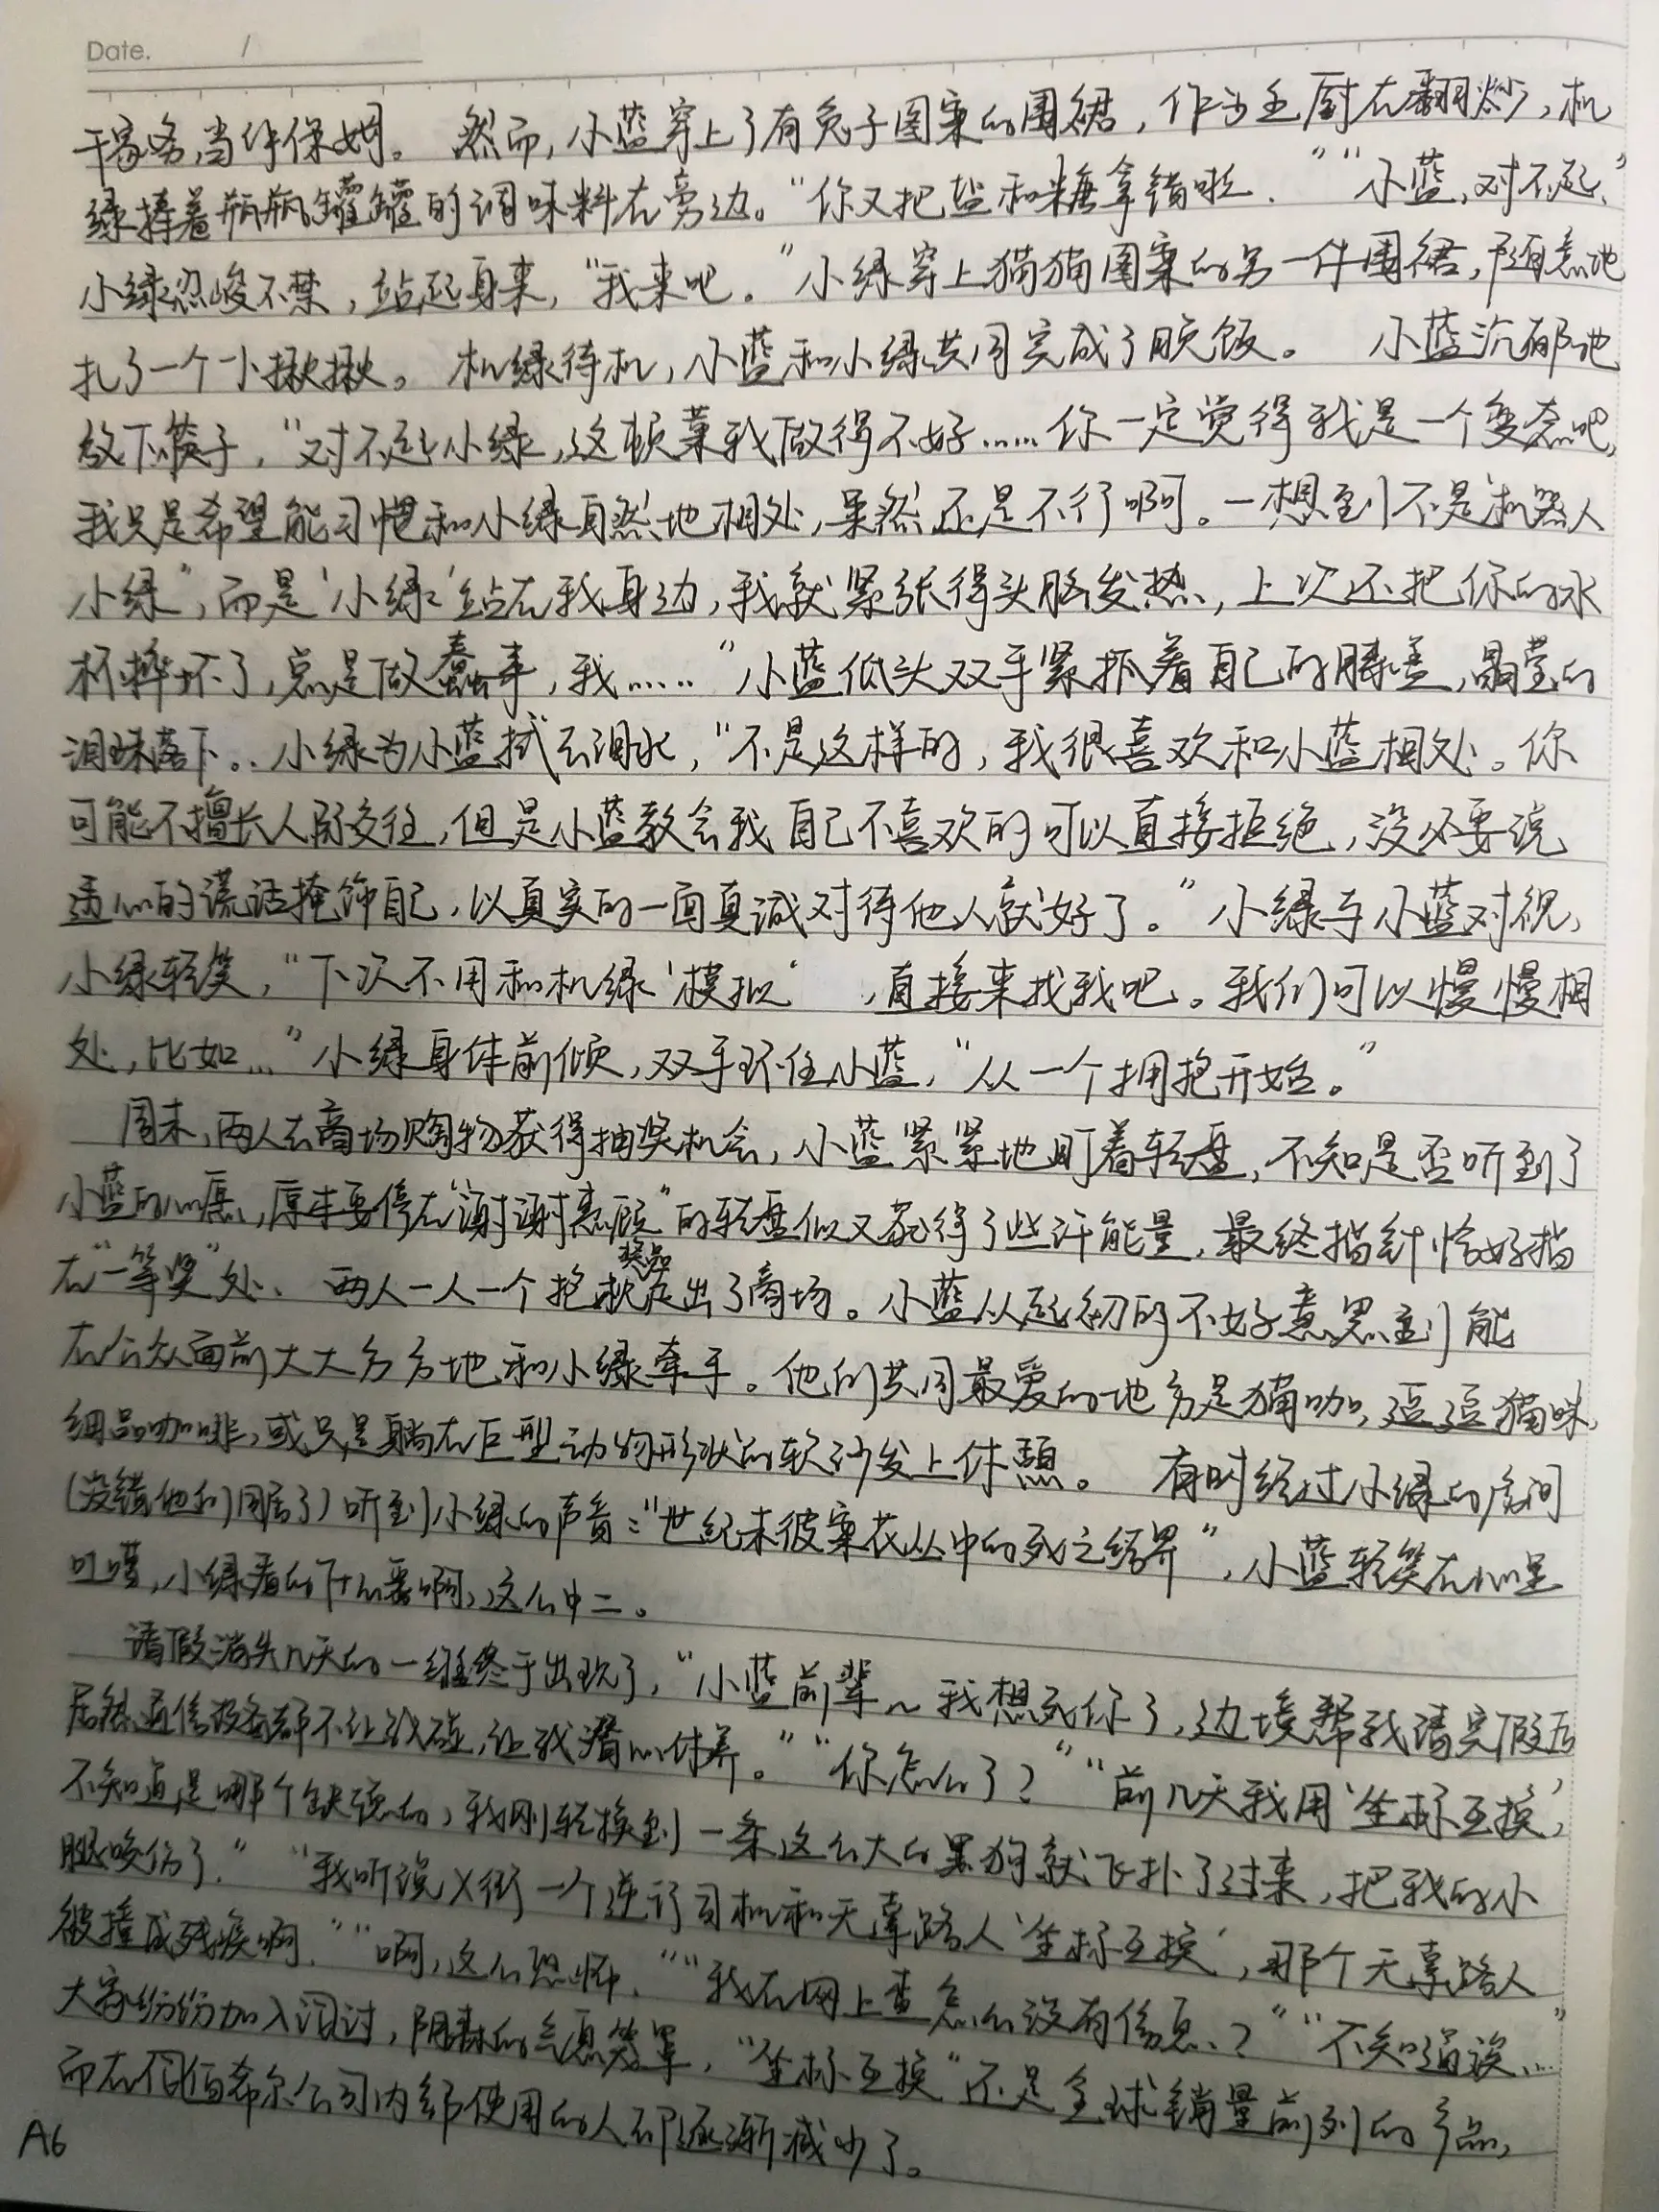 Date. /
干家务,当作保姆。 然而,小蓝穿上了有兔子图案的围裙,作为主厨在翻炒,机
绿捧着瓶瓶罐罐的调味料在旁边。“你又把盐和糖拿错啦.”“小蓝,对不起.”
小绿忍峻不禁,站起身来,“我来吧。”小绿穿上猫猫图案的另一件围裙,随意地
扎了一个小揪揪。 机绿待机,小蓝和小绿共同完成了晚饭。 小蓝沉郁地
放下筷子,“对不起小绿,这顿菜我做得不好……你一定觉得我是一个变态吧,
我只是希望能习惯和小绿自然地相处,果然还是不行啊。一想到不是‘机器人
小绿’,而是‘小绿’站在我身边,我就紧张得头脑发热,上次还把你的水
杯摔坏了,总是做蠢事,我……”小蓝低头双手紧抓着自己的膝盖,晶莹的
泪珠落下。.小绿为小蓝拭去泪水,“不是这样的,我很喜欢和小蓝相处。你
可能不擅长人际交往,但是小蓝教会我自己不喜欢的可以直接拒绝,没必要说
违心的谎话掩饰自己,以真实的一面真诚对待他人就好了。”小绿与小蓝对视,
小绿轻笑,“下次不用和机绿‘模拟’ ,直接来找我吧。我们可以慢慢相
处,比如…”小绿身体前倾,双手环住小蓝,“从一个拥抱开始。”
周末,两人去商场购物获得抽奖机会,小蓝紧紧地盯着转盘,不知是否听到了
小蓝的心愿,原本要停在“谢谢惠顾”的转盘似又获得了些许能量,最终指针恰好指
在“一等奖”处、 两人一人一个抱枕奖品走出了商场。小蓝从起初的不好意思到能
在公众面前大大方方地和小绿牵手。他们共同最爱的地方是猫咖,逗逗猫咪,
细品咖啡,或只是躺在巨型动物形状的软沙发上休憩。 有时经过小绿的房间
(没错他们同居了)听到小绿的声音:“世纪末彼案花丛中的死之结界”,小蓝轻笑在心里
叹嘆,小绿看的什么番啊,这么中二。
请假消失几天的一维终于出现了,“小蓝前辈~我想死你了,边境帮我请完假后
居然通信设备都不让我碰,让我潜心休养。”“你怎么了?”“前几天我用‘坐标互换’,
不知道是哪个缺德的,我刚转换到一条这么大的黑狗就飞扑了过来,把我的小
腿咬伤了.”“我听说X街一个逆行司机和无辜路人‘坐标互换’,那个无辜路人
被撞成残疾啊.”“啊,这么恐怖.”“我在网上查怎么没有信息.?”“不知道诶…”
大家纷纷加入讨论,阴森的气息笼罩,“坐标互换”还是全球销量前列的产品,
而在伯希尔公司内部使用的人却逐渐减少了。
A6